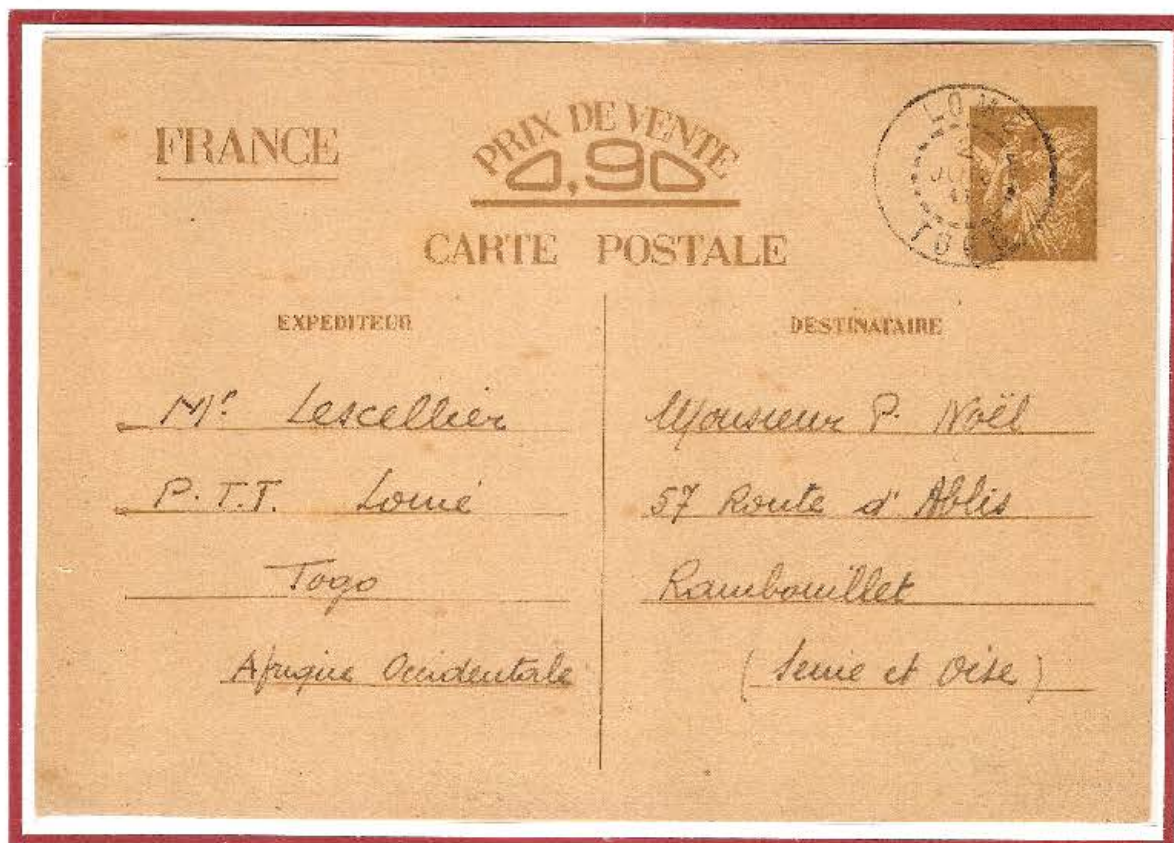 FRANCE
PRIX DE VENTE
0,90
CARTE POSTALE
LOME
TOGO
EXPEDITEUR
Mr. Lescellier
P.T.T. Lomé
Togo
Afrique Occidentale
DESTINATAIRE
Monsieur P. Noël
57 Route d'Ablis
Rambouillet
(Seine et Oise)